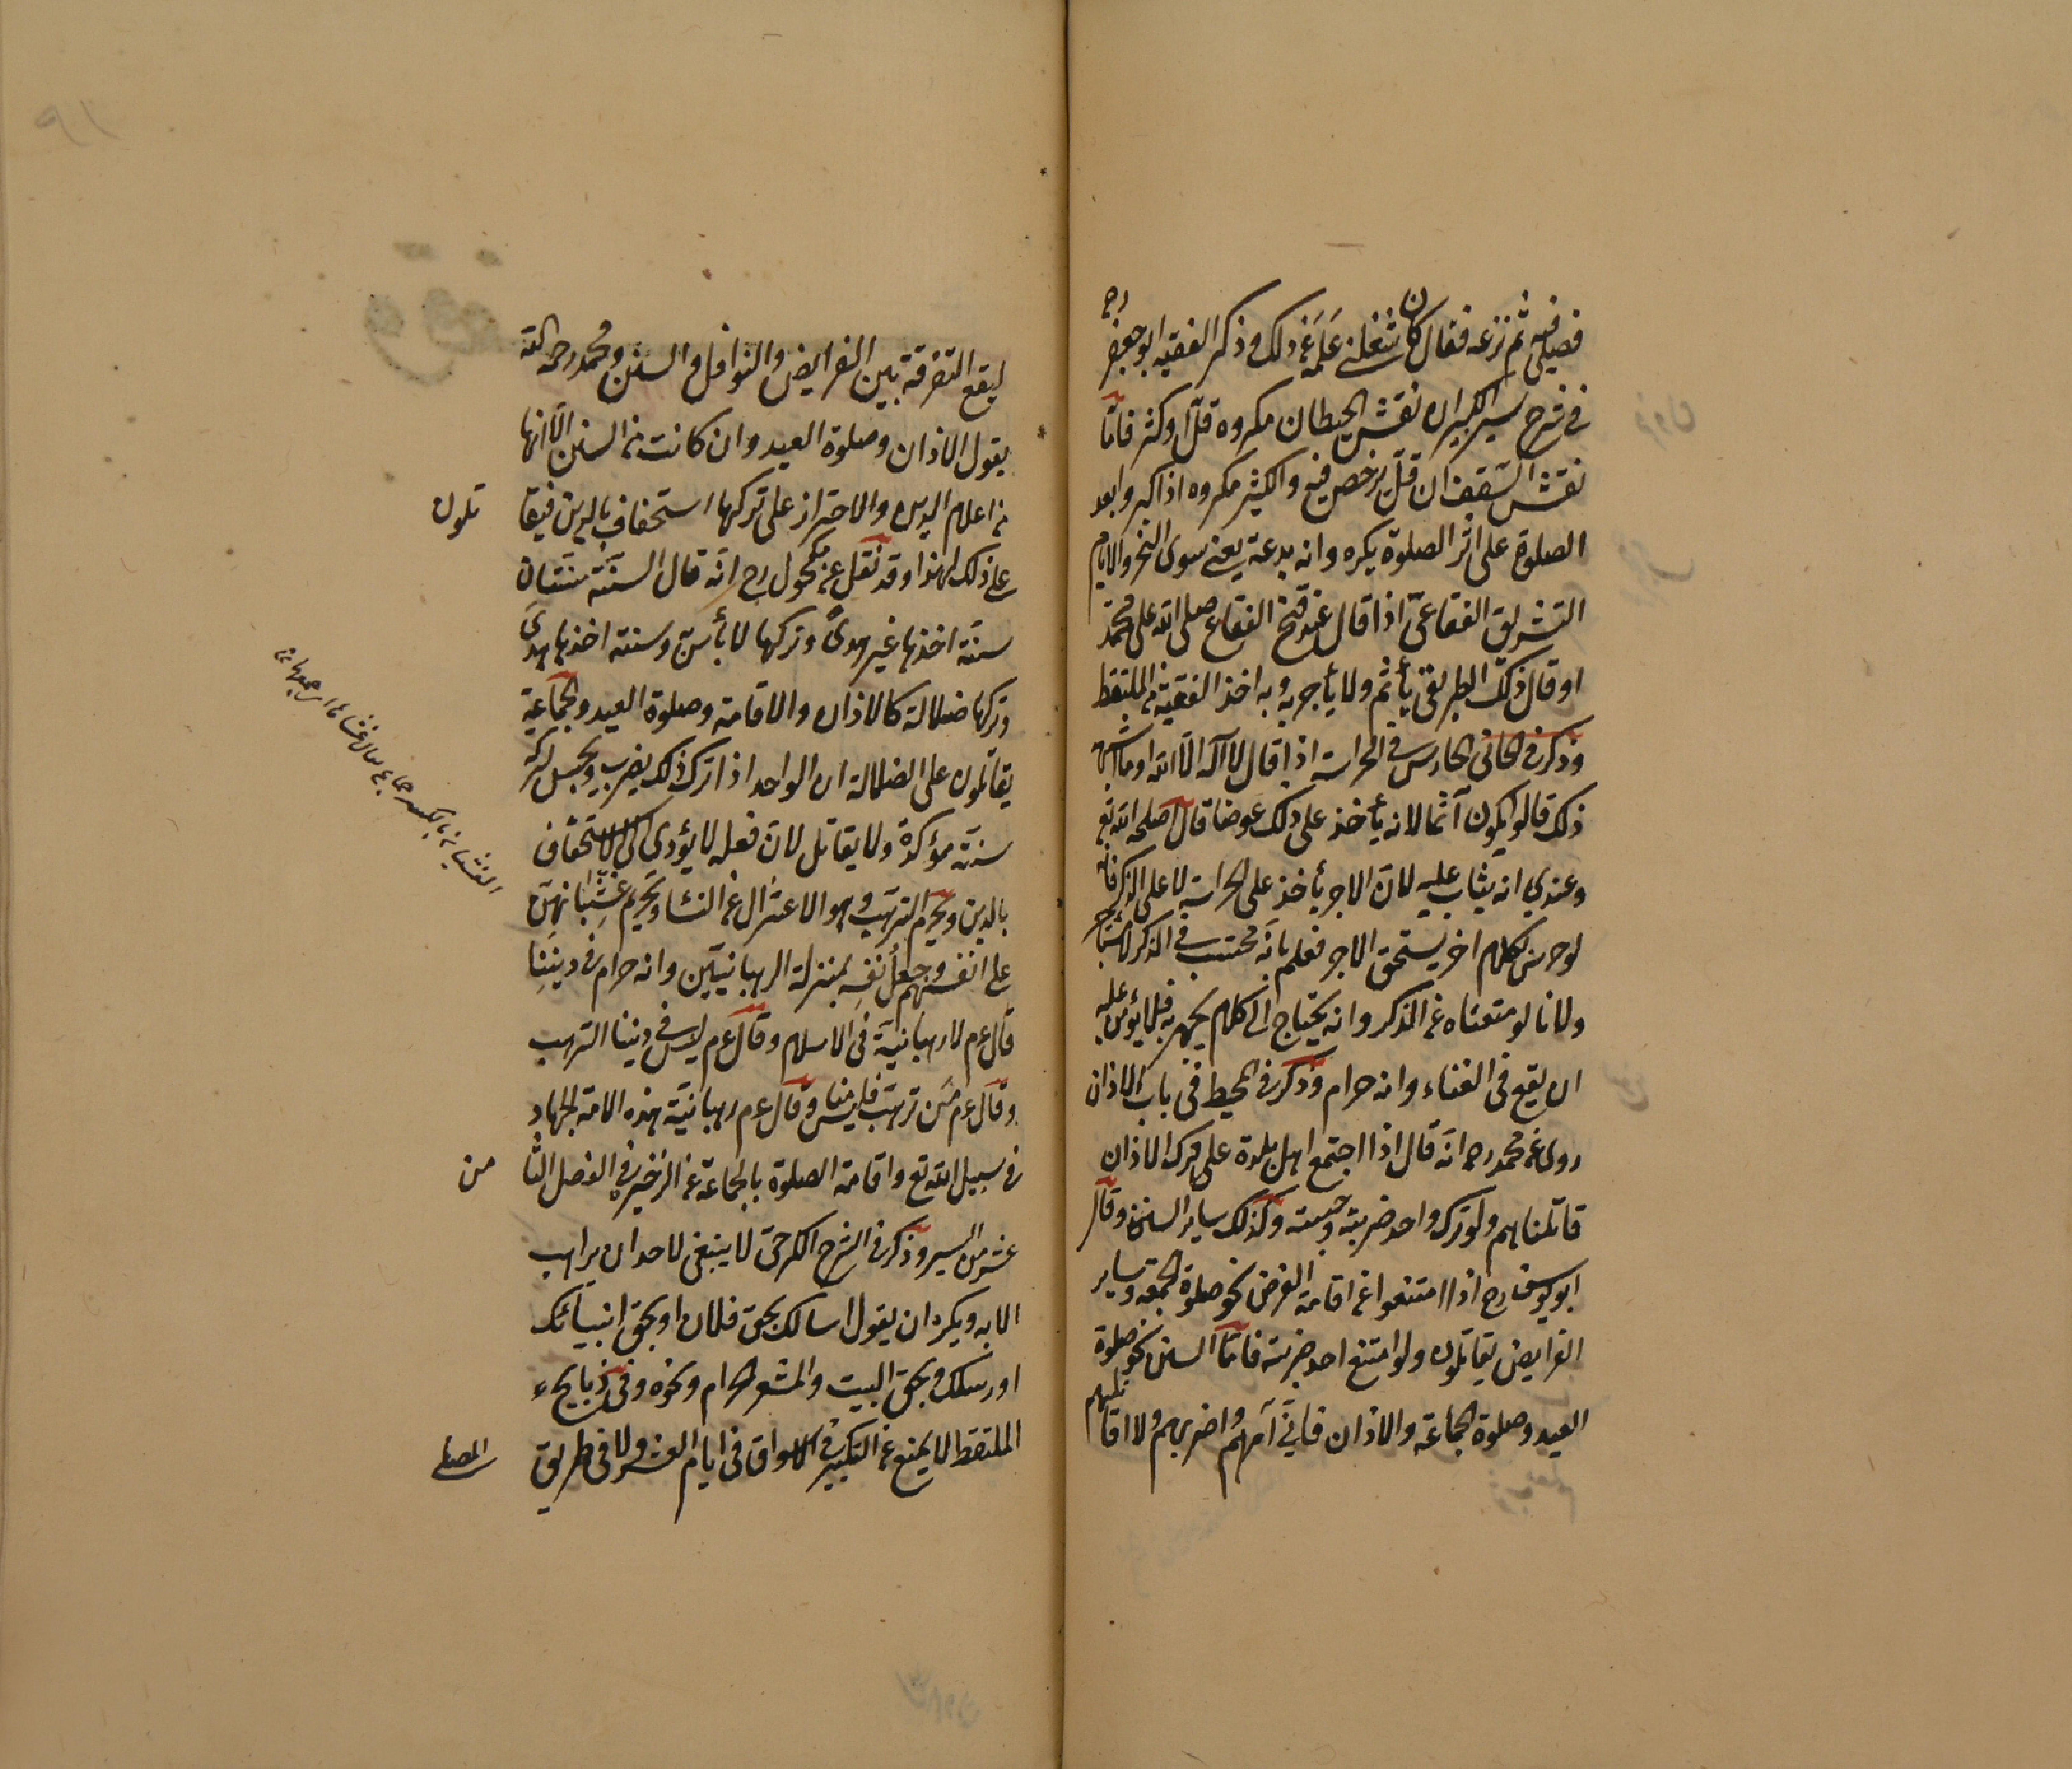 فصلى فيه ثم نزعه فقال كان شغلني علمه عن ذلك وذكر الفقيه ابو جعفر رح
في شرح سير الكبير ان نقش الحيطان مكروه قلّ او كثر فامّا
نقش السقف ان قلّ يرخص فيه والكثير مكروه اذا كره وابعد
الصلوة على اثر الصلوة يكره وانه بدعة يعني سوى النحر والايام
التشريق الفقاعيّ اذا قال عند فتح الفقاع صلى الله على محمد
او قال ذلك الطريقي يأثم ولا يأجر به وبه اخذ الفقيه من الملتقط
وذكر في الخاني الحارس في الحراسة اذا قال لا اله الا الله او ما اشبه
ذلك قالوا يكون آثما لانه يأخذ على ذلك عوضا قال اصلحه الله تع
وعندي انه يثاب عليه لانّ الاجر يأخذ على الحراسة لا على الذكر فانه
لو حرس بكلام اخر يستحق الاجر فعلم بانّه محتسب في الذكر لا مستأجر
ولانا لو منعناه عن الذكر وانه يحتاج الى كلام يجهر به فلا يؤمن عليه
ان يقع في الغناء وانه حرام وذكر في المحيط في باب الاذان
روى عن محمد رح انّه قال اذا اجتمع اهل بلدة على ترك الاذان
قاتلناهم ولو ترك واحد ضربته وحبسته وكذلك ساير السنن وقال
ابو يوسف رح اذا امتنعوا عن اقامة الفرض نحو صلوة الجمعة وساير
الفرايض يقاتلون ولو امتنع احد ضربته فامّا السنن نحو صلوة
العيد وصلوة الجماعة والاذان فانّي آمرهم واضربهم ولا اقاتلهم
ليقع التفرقة بين الفرايض والنوافل والسنن ومحمد رحمه الله
يقول الاذان وصلوة العيد وان كانت من السنن الّا انّها
من اعلام الدين والاحتراز على تركها استخفاف بالدين فيقاتلون
على ذلك لهذا وقد نقل عن مكحول رح انّه قال السنّة سنّتان
سنّة اخذها غير هدىً وتركها لا بأس به وسنة اخذها هدىً
وتركها ضلالة كالاذان والاقامة وصلوة العيد والجماعة
يقاتلون على الضلالة ان الواحد اذا ترك ذلك يضرب ويحبس لتركه
سنّة مؤكدة ولا يقاتل لانّ فعله لا يؤدي الى الاستخفاف
بالدين ويحرم الترهّب وهو الاعتزال عن النساء وتحريم غشيانهنّ
على انفسهم وجعل نفسه بمنزلة الرهبانيّين وانه حرام في ديننا
قال عم لا رهبانيّة في الاسلام وقال عم ليس في ديننا الترهب
وقال عم من ترهّب فليس منا وقال عم رهبانيّة هذه الامة الجهاد
في سبيل الله تع واقامة الصلوة بالجماعة من الذخيرة في الفصل الثامن
عشر من السير وذكر في الشرح الكرخيّ لا ينبغي لاحد ان يراهب
الا به ويكره ان يقول اسالك بحق فلان او بحق انبيائك
او رسلك وبحق البيت والمشعر الحرام ونحوه وفي ذبايح
الملتقط لا يمنع عن التكبير في الاسواق في ايام العشر ولا في طريق المصلى
الغشيان بالكسر جماع